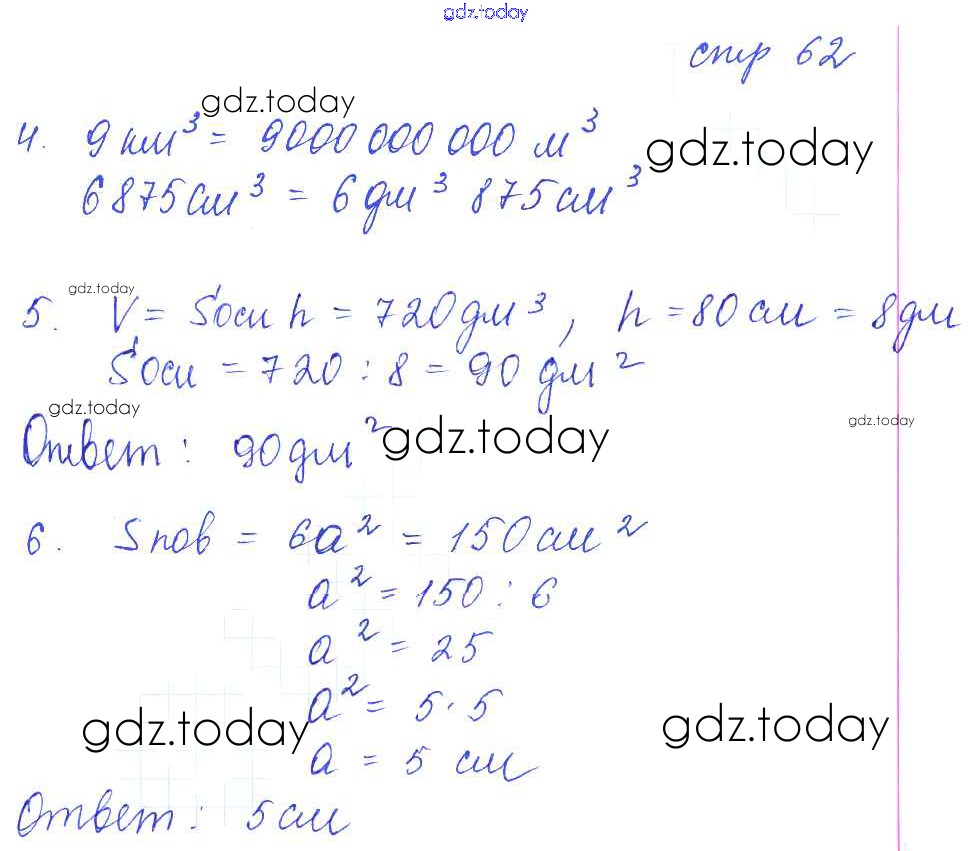 gdz.today
стр 62
gdz.today
4. 9 км³ = 9000 000 000 м³
gdz.today
6875 см³ = 6 дм³ 875 см³
gdz.today
5. V = Sосн h = 720 дм³, h = 80 см = 8 дм
Sосн = 720 : 8 = 90 дм²
gdz.today
gdz.today
Ответ: 90 дм²
gdz.today
6. Sпов = 6a² = 150 см²
a² = 150 : 6
a² = 25
a² = 5 · 5
gdz.today
gdz.today
a = 5 см
Ответ: 5 см